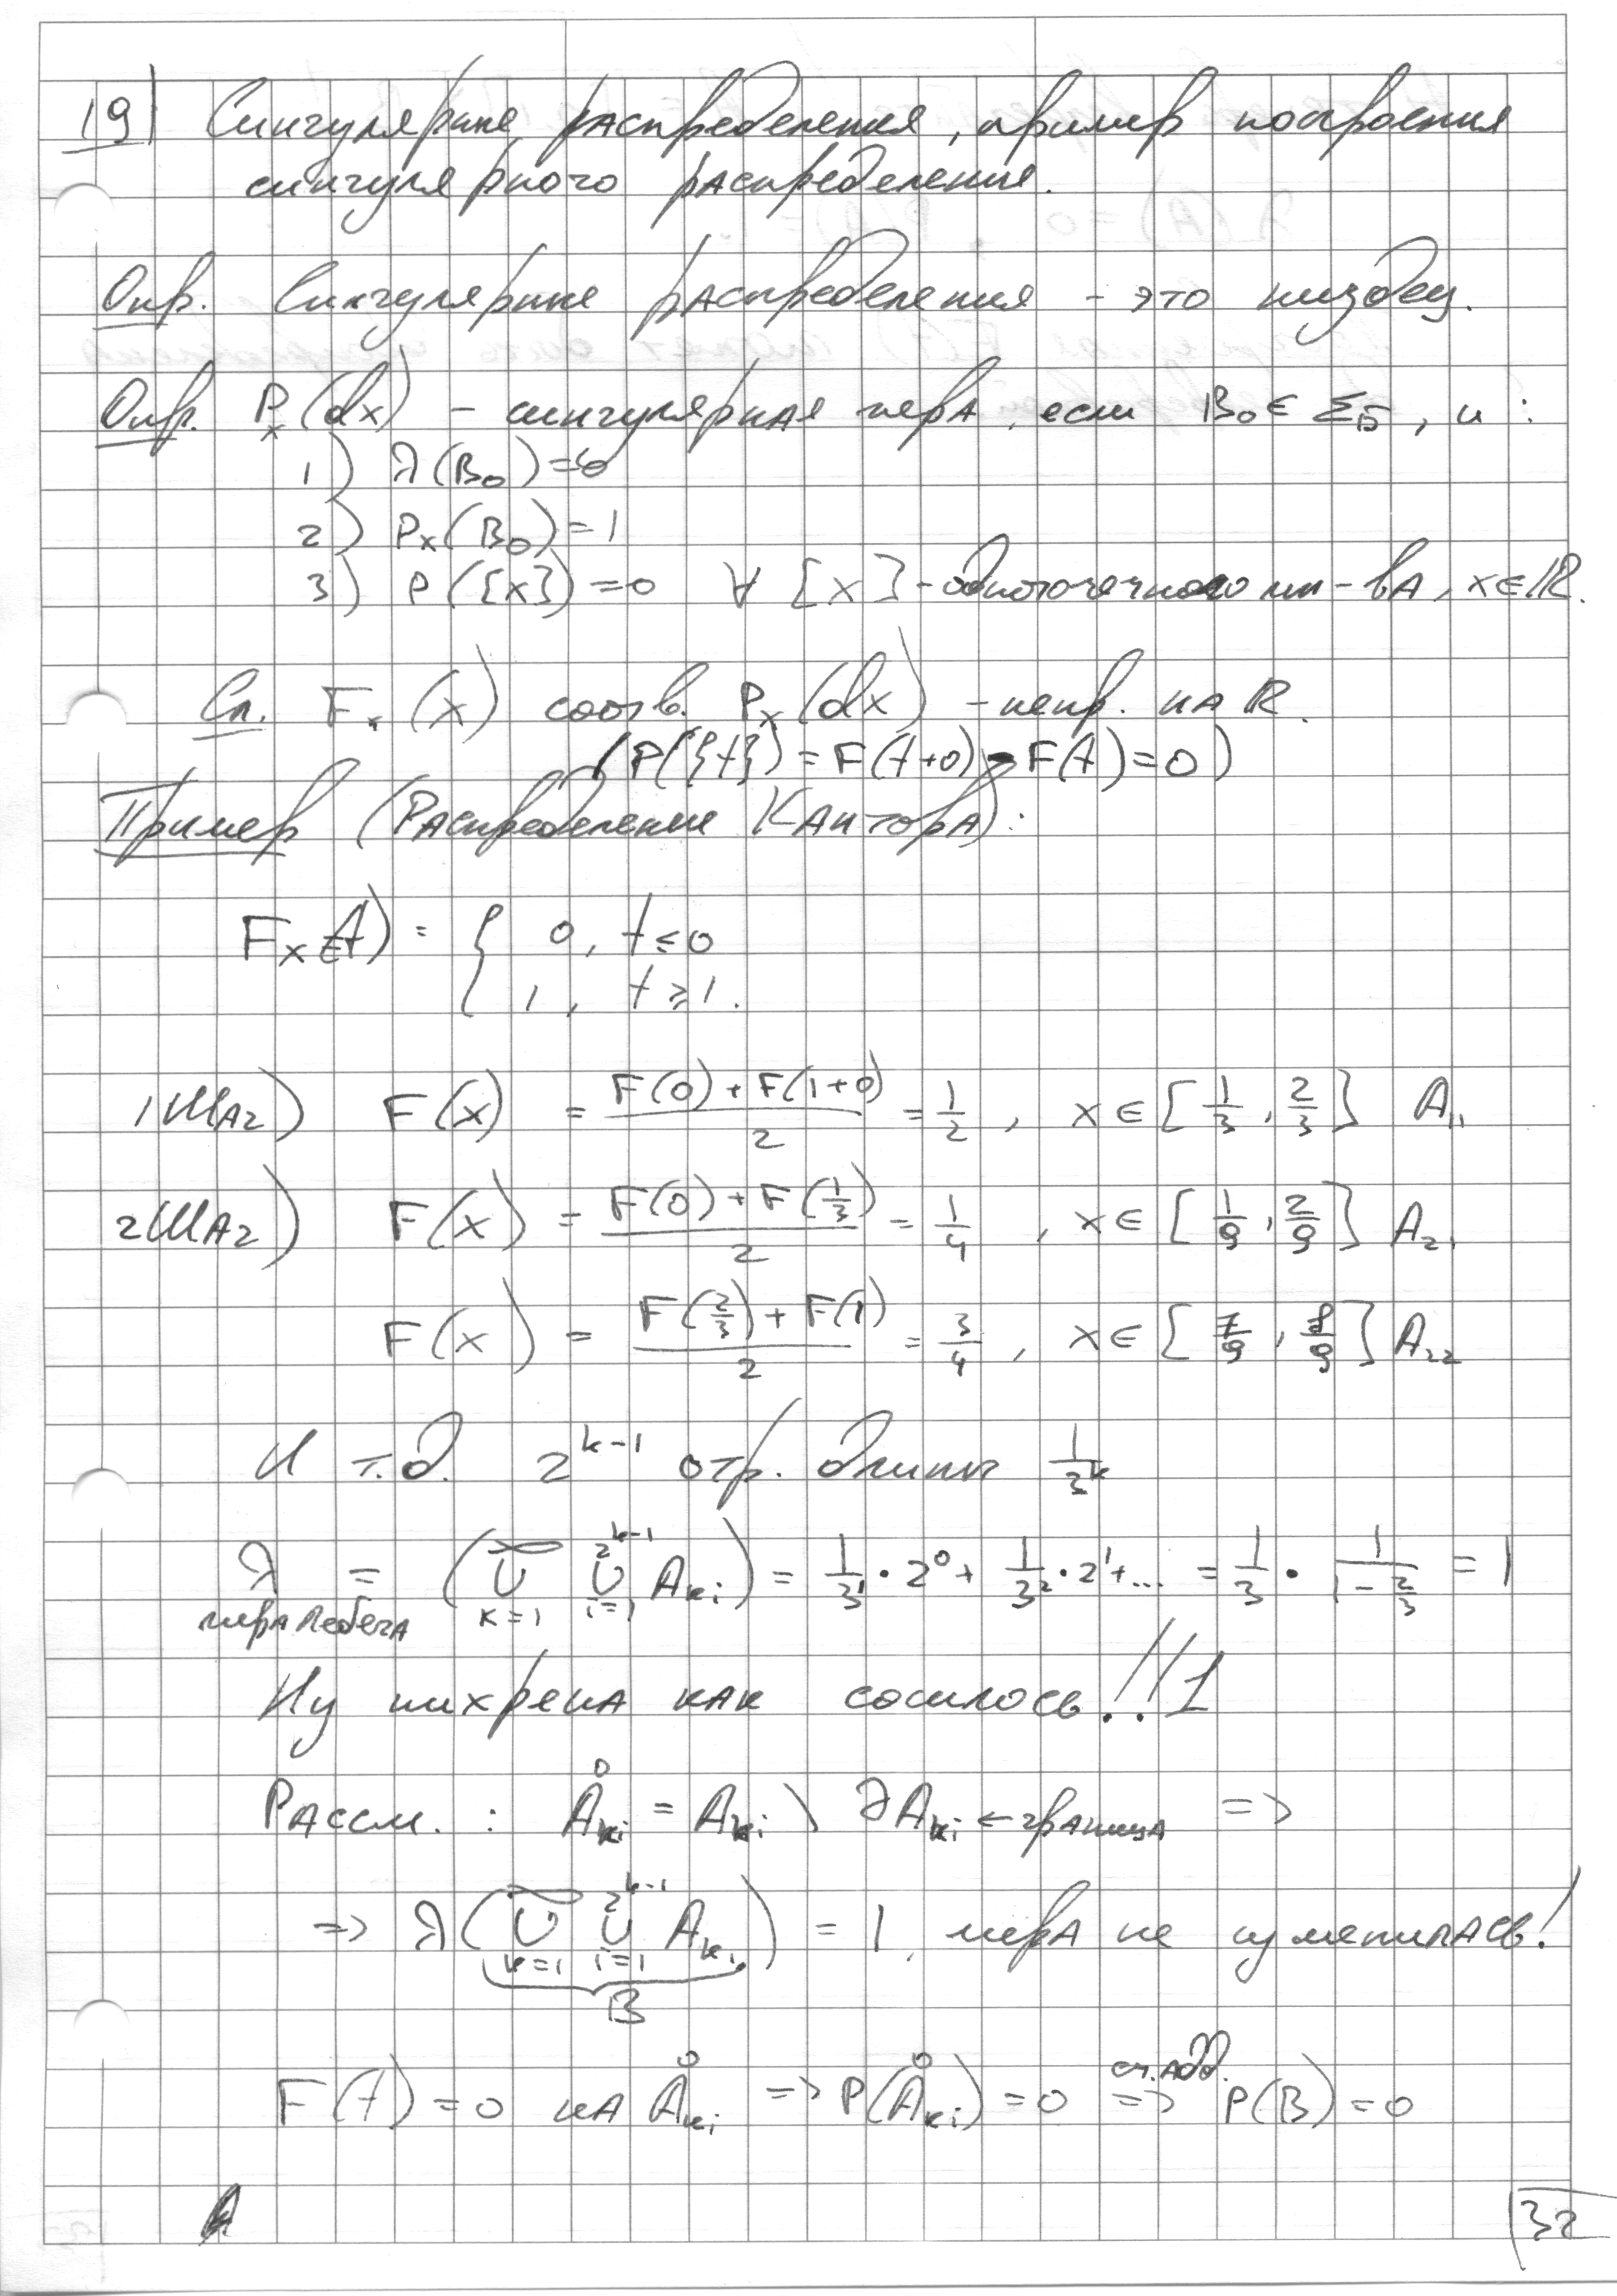 19) Сингулярные распределения, пример построения
сингулярного распределения.
Опр. Сингулярные распределения - это пиздец.
Опр. Pₓ(dx) - сингулярная мера, если B₀ ∈ Σ_Б, и:
1) λ(B₀)=0
2) Pₓ(B₀)=1
3) P({x})=0 ∀ {x} - одноточечного мн-ва, x∈ℝ.
Сл. Fₓ(x) соотв. Pₓ(dx) - непр. на ℝ.
(P({t}) = F(t+0) - F(t) = 0)
Пример (Распределение Кантора):
Fₓ(t) = { 0, t ≤ 0
1, t ≥ 1.
1 шаг) F(x) = (F(0) + F(1+0))/2 = 1/2, x ∈ [1/3, 2/3] A₁₁
2 шаг) F(x) = (F(0) + F(1/3))/2 = 1/4, x ∈ [1/9, 2/9] A₂₁
F(x) = (F(2/3) + F(1))/2 = 3/4, x ∈ [7/9, 8/9] A₂₂
И т.д. 2^(k-1) отр. длины 1/3^k
λ = (∪_{k=1}^∞ ∪_{i=1}^{2^(k-1)} A_ki) = 1/3¹ · 2⁰ + 1/3² · 2¹ + ... = 1/3 · 1/(1 - 2/3) = 1
мера Лебега
Ну нихрена как сошлось!!!1
Рассм.: Å_ki = A_ki \ ∂A_ki ← граница =>
=> λ(∪_{k=1}^∞ ∪_{i=1}^{2^(k-1)} A_ki) = 1, мера не изменилась!
B
F(t) = 0 на Å_ki => P(Å_ki) = 0 сч. адд. => P(B) = 0
32